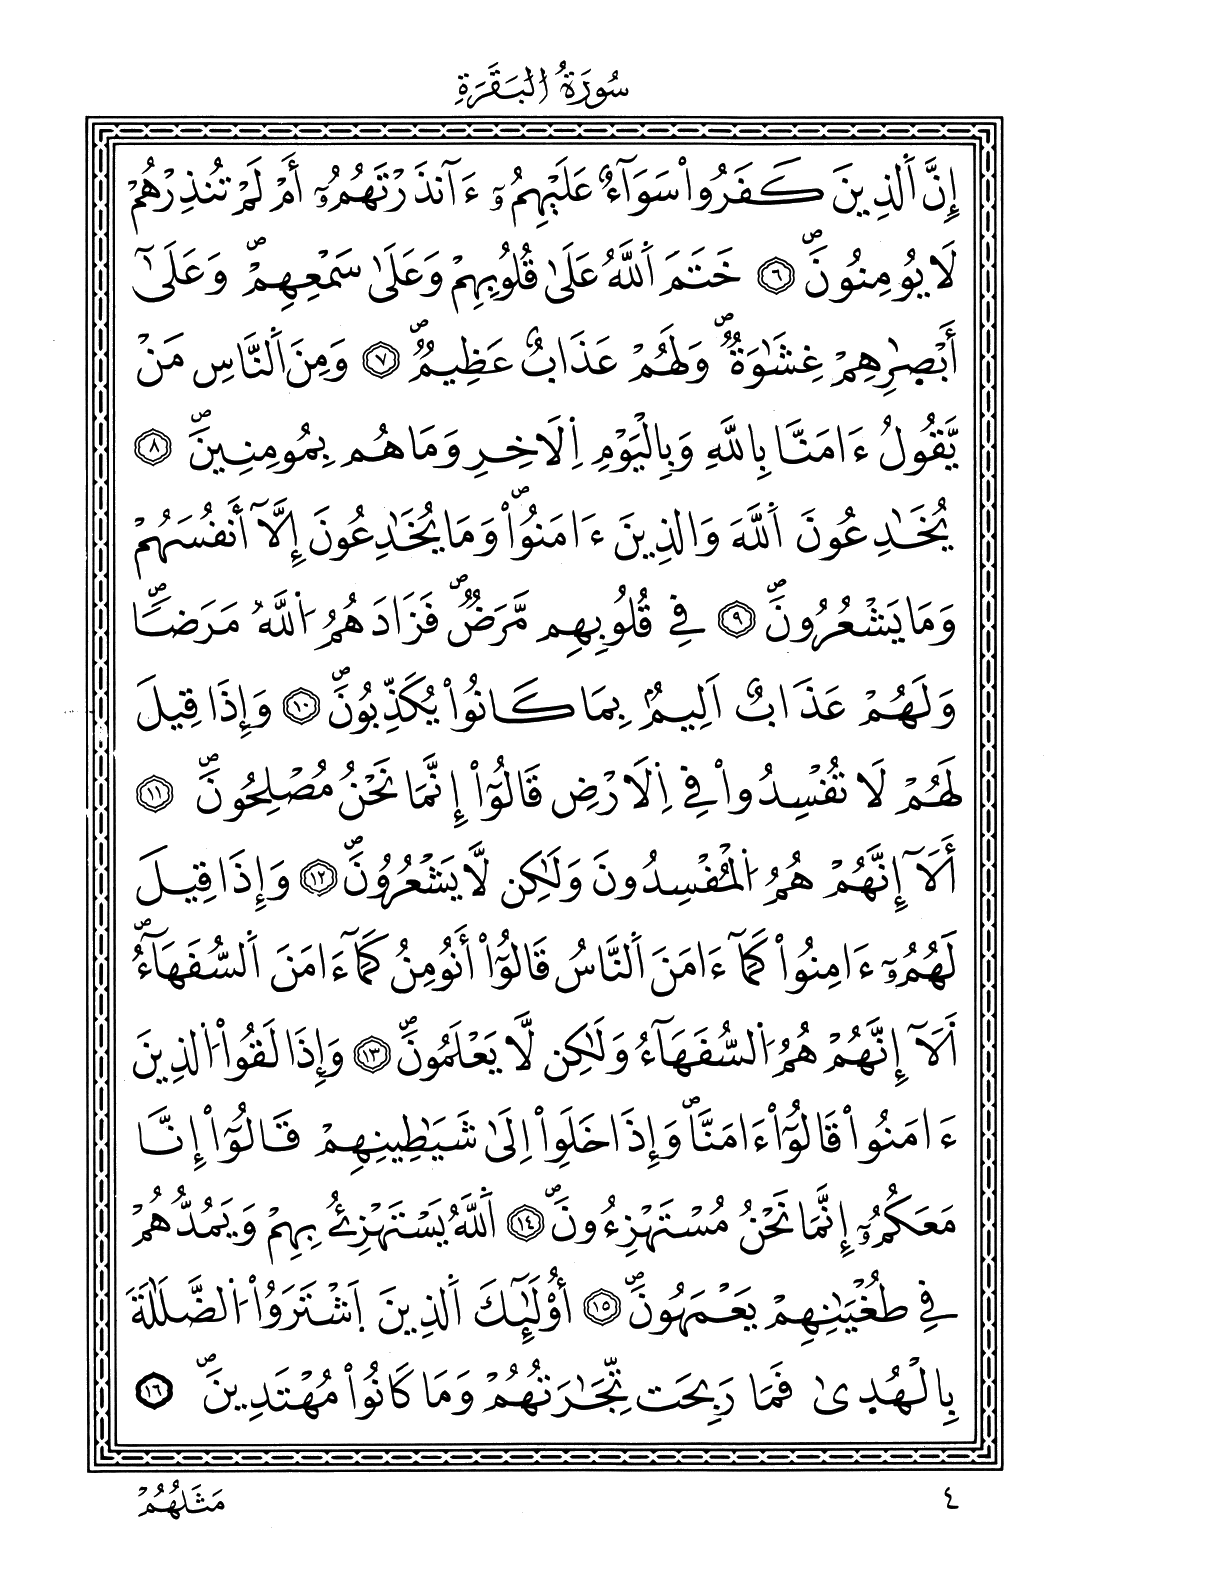 سُورَةُ الْبَقَرَةِ
إِنَّ اَ۬لذِينَ كَفَرُواْ سَوَآءٌ عَلَيْهِمُۥٓ ءَآنذَرْتَهُمُۥٓ أَمْ لَمْ تُنذِرْهُمْ
لَا يُومِنُونَۖ ٦ خَتَمَ اَ۬للَّهُ عَلَىٰ قُلُوبِهِمْ وَعَلَىٰ سَمْعِهِمْۖ وَعَلَىٰٓ
أَبْصِٰرِهِمْ غِشَٰوَةٞۖ وَلَهُمْ عَذَابٌ عَظِيمٞۖ ٧ وَمِنَ اَ۬لنَّاسِ مَنْ
يَّقُولُ ءَامَنَّا بِاللَّهِ وَبِالْيَوْمِ اِ۬لَاخِرِ وَمَا هُم بِمُومِنِينَۖ ٨
يُخَٰدِعُونَ اَ۬للَّهَ وَالذِينَ ءَامَنُواْۖ وَمَا يُخَٰدِعُونَ إِلَّآ أَنفُسَهُمْ
وَمَا يَشْعُرُونَۖ ٩ فِے قُلُوبِهِم مَّرَضٞۖ فَزَادَهُمُ اُ۬للَّهُ مَرَضاٗۖ
وَلَهُمْ عَذَابٌ اَلِيمُۢ بِمَا كَانُواْ يُكَذِّبُونَۖ ١٠ وَإِذَا قِيلَ
لَهُمْ لَا تُفْسِدُواْ فِے اِ۬لَارْضِ قَالُوٓاْ إِنَّمَا نَحْنُ مُصْلِحُونَۖ ١١
أَلَآ إِنَّهُمْ هُمُ اُ۬لْمُفْسِدُونَ وَلَٰكِن لَّا يَشْعُرُونَۖ ١٢ وَإِذَا قِيلَ
لَهُمُۥٓ ءَامِنُواْ كَمَآ ءَامَنَ اَ۬لنَّاسُ قَالُوٓاْ أَنُومِنُ كَمَآ ءَامَنَ اَ۬لسُّفَهَآءُۖ
أَلَآ إِنَّهُمْ هُمُ اُ۬لسُّفَهَآءُ وَلَٰكِن لَّا يَعْلَمُونَۖ ١٣ وَإِذَا لَقُواْ اُ۬لذِينَ
ءَامَنُواْ قَالُوٓاْ ءَامَنَّاۖ وَإِذَا خَلَوِاْ اِلَىٰ شَيَٰطِينِهِمْ قَالُوٓاْ إِنَّا
مَعَكُمُۥٓ إِنَّمَا نَحْنُ مُسْتَهْزِءُونَۖ ١٤ اَ۬للَّهُ يَسْتَهْزِۓُ بِهِمْ وَيَمُدُّهُمْ
فِے طُغْيَٰنِهِمْ يَعْمَهُونَۖ ١٥ أُوْلَٰٓئِكَ اَ۬لذِينَ اَ۪شْتَرَوُاْ اُ۬لضَّلَٰلَةَ
بِالْهُدِىٰ فَمَا رَبِحَت تِّجَٰرَتُهُمْ وَمَا كَانُواْ مُهْتَدِينَۖ ١٦
مَثَلُهُمْ
٤